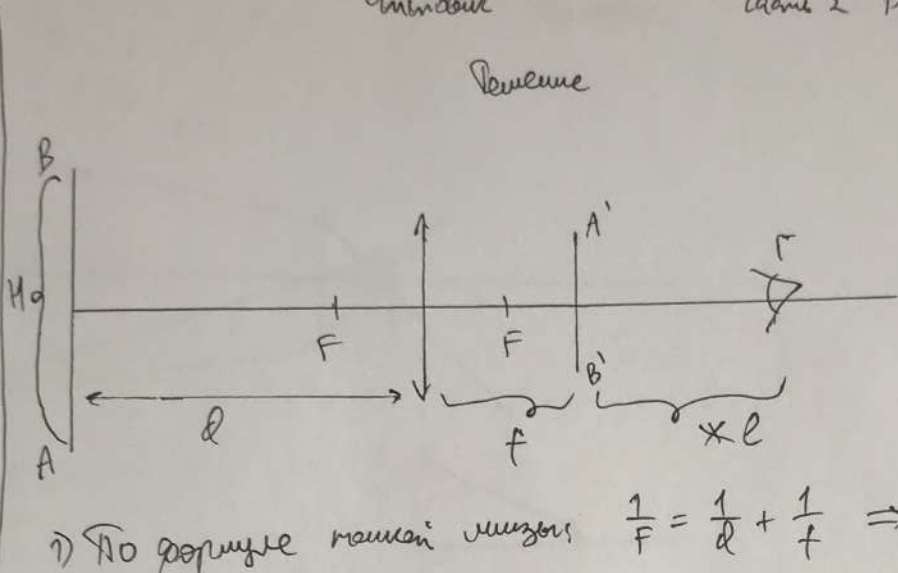 Решение
B
A'
Г
H₀
F
F
B'
A
d
f
l
1) По формуле тонкой линзы 1/F = 1/d + 1/f ⇒